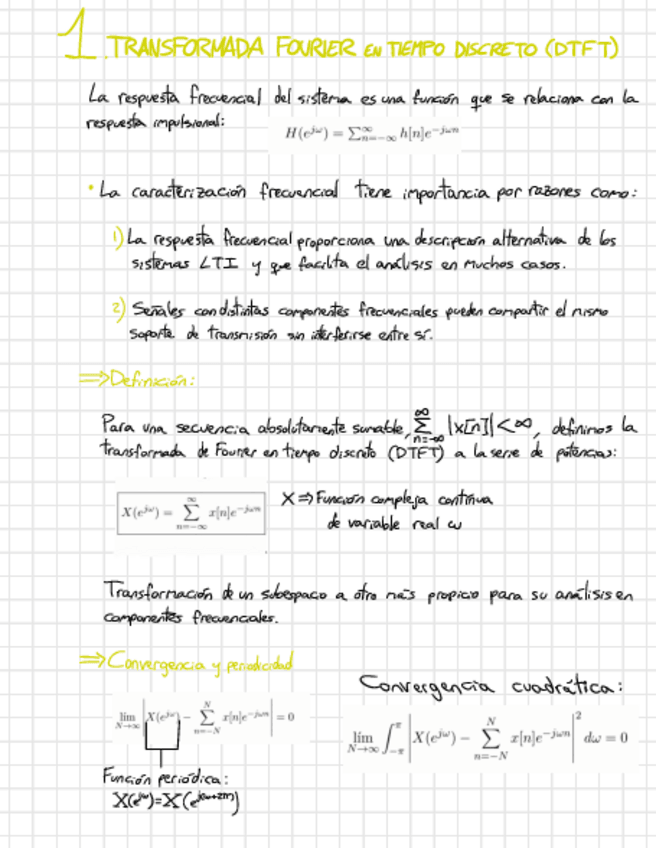 1. TRANSFORMADA FOURIER EN TIEMPO DISCRETO (DTFT)
La respuesta frecuencial del sistema es una función que se relaciona con la
respuesta impulsional:
H(e^{jω}) = ∑_{n=-∞}^{∞} h[n]e^{-jωn}
• La caracterización frecuencial tiene importancia por razones como:
1) La respuesta frecuencial proporciona una descripción alternativa de los
sistemas LTI y que facilita el análisis en muchos casos.
2) Señales con distintas componentes frecuenciales pueden compartir el mismo
soporte de transmisión sin interferirse entre sí.
⇒ Definición:
Para una secuencia absolutamente sumable, ∑_{n=-∞}^{∞} |x[n]| < ∞, definimos la
transformada de Fourier en tiempo discreto (DTFT) a la serie de potencias:
X(e^{jω}) = ∑_{n=-∞}^{∞} x[n]e^{-jωn}
X ⇒ Función compleja continua
de variable real ω
Transformación de un subespacio a otro más propicio para su análisis en
componentes frecuenciales.
⇒ Convergencia y periodicidad
lím_{N→∞} |X(e^{jω}) - ∑_{n=-N}^{N} x[n]e^{-jωn}| = 0
Función periódica:
X(e^{jω}) = X(e^{jω+2π})
Convergencia cuadrática:
lím_{N→∞} ∫_{-π}^{π} |X(e^{jω}) - ∑_{n=-N}^{N} x[n]e^{-jωn}|^2 dω = 0